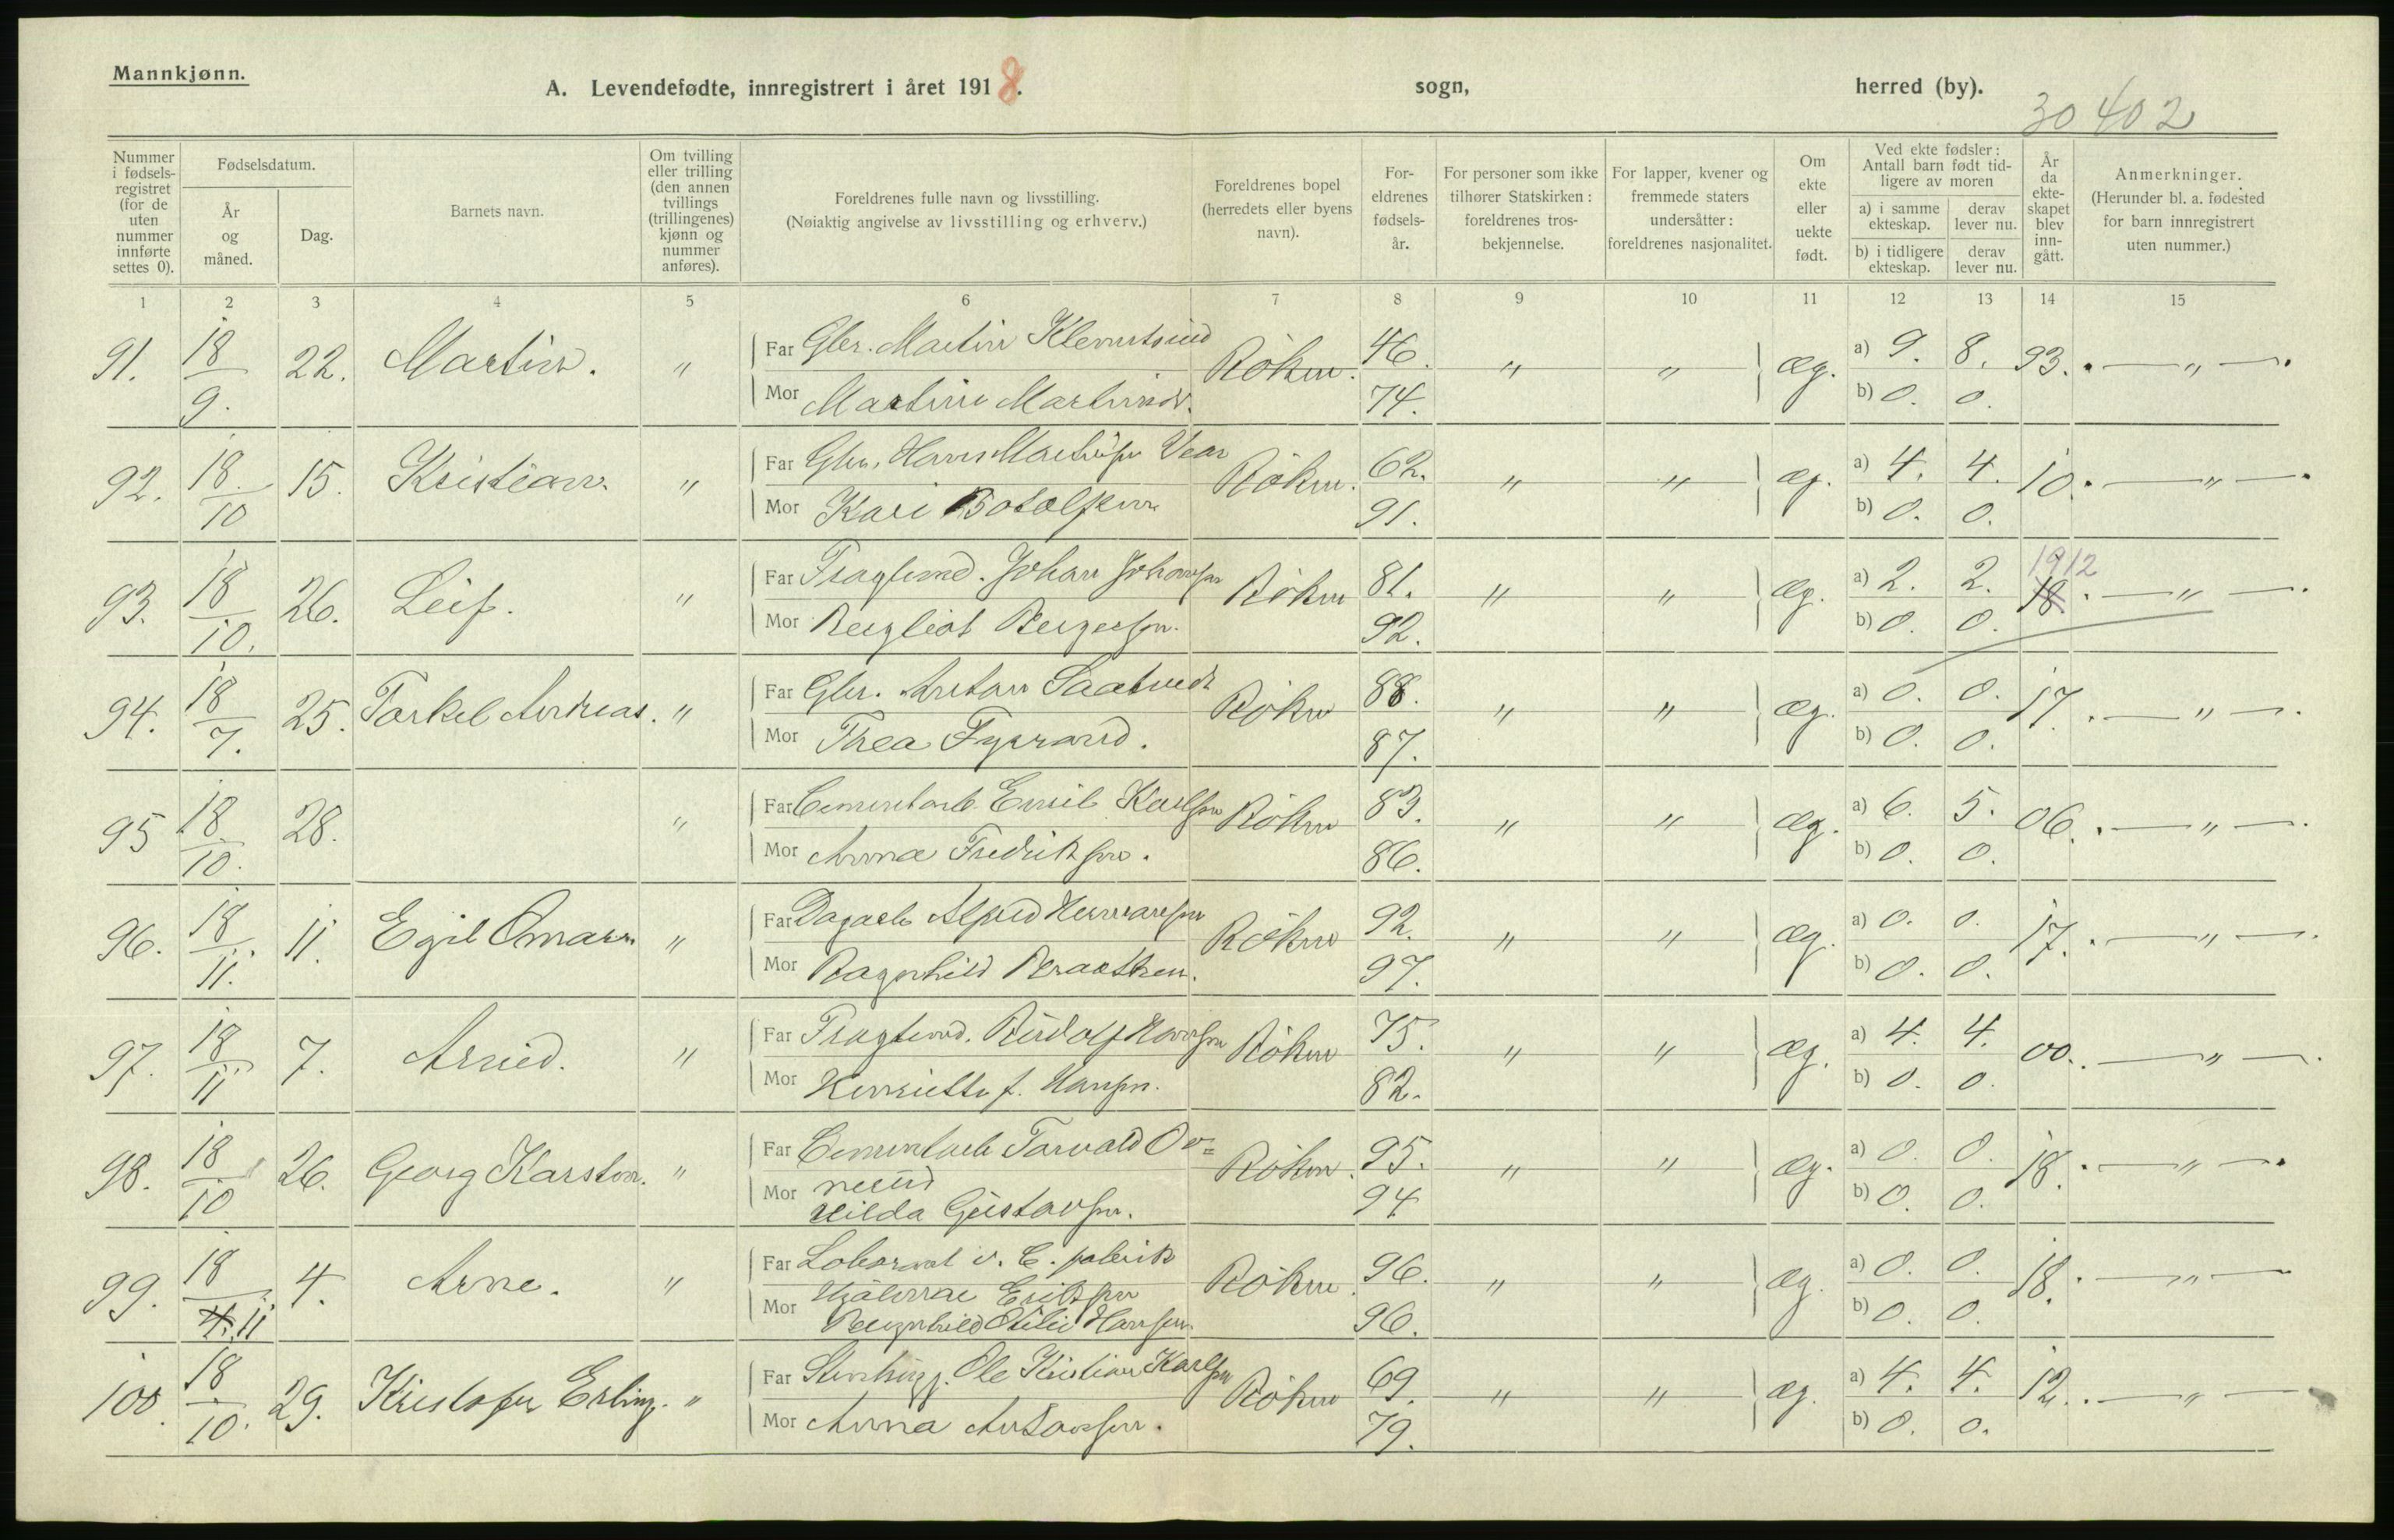 Mannkjønn.
A. Levendefødte, innregistrert i året 1918. sogn, herred (by).
30402
Nummer i fødsels-registret (for de uten nummer innførte settes 0).
Fødselsdatum.
År og måned.
Dag.
Barnets navn.
Om tvilling eller trilling (den annen tvillings (trillingenes) kjønn og nummer anføres).
Foreldrenes fulle navn og livsstilling.
(Nøiaktig angivelse av livsstilling og erhverv.)
Foreldrenes bopel (herredets eller byens navn).
For-eldrenes fødsels-år.
For personer som ikke tilhører Statskirken: foreldrenes tros-bekjennelse.
For lapper, kvener og fremmede staters undersåtter: foreldrenes nasjonalitet.
Om ekte eller uekte født.
Ved ekte fødsler: Antall barn født tid-ligere av moren
a) i samme ekteskap. derav lever nu.
b) i tidligere ekteskap. derav lever nu.
År da ekte-skapet blev inn-gått.
Anmerkninger.
(Herunder bl. a. fødested for barn innregistrert uten nummer.)
1 2 3 4 5 6 7 8 9 10 11 12 13 14 15
91. 18/9. 22. Martin. " Far Gbr. Martin Røken. 46. " " æg. a) 9. 8. 93. . — " — .
Mor Martine 74. b) 0. 0.
92. 18/10 15. Kristian. " Far Gbr. Hans Vear Røken. 62. " " æg. a) 4. 4. 10. . — " — .
Mor Kari 91. b) 0. 0.
93. 18/10. 26. Leif. " Far Johan Johansen Røken 81. " " æg. a) 2. 2. 1912 18. — " — .
Mor Bergliot Bergersen. 92. b) 0. 0.
94. 18/7. 25. Torkel Andreas. " Far Gbr. Anton Røken 88. " " æg. a) 0. 0. 17. . — " — .
Mor Thea 87. b) 0. 0.
95 18/10. 28. " Far Cementarb. Emil Karlsen Røken 83. " " æg. a) 6. 5. 06. . — " — .
Mor Anna Fredriksen. 86. b) 0. 0.
96. 18/11. 11. Egil Omar " Far Dagarb. Alfred Hermansen Røken 92. " " æg. a) 0. 0. 17. . — " — .
Mor Ragnhild 97. b) 0. 0.
97. 18/11 7. Arvid. " Far Rudolf Hansen Røken 75. " " æg. a) 4. 4. 00. . — " — .
Mor Henriette f. Hansen. 82. b) 0. 0.
98. 18/10 26. Georg Karsten. " Far Cementarb. Torvald Røken. 95. " " æg. a) 0. 0. 18. . — " — .
Mor Hilda Gustavsen. 94 b) 0. 0.
99. 18/4. 11. 4. Arne. " Far v. C. fabrik Røken. 96. " " æg. a) 0. 0. 18. . — " —
Mor Hjalmar Eriksen
Ragnhild Otilie Hansen. 96. b) 0. 0.
100. 18/10. 29. Kristofer Erling. " Far Stenhugg. Ole Kristian Karlsen Røken 69. " " æg. a) 4. 4. 12. . — " —
Mor Anna Antonsen. 79. b) 0. 0.